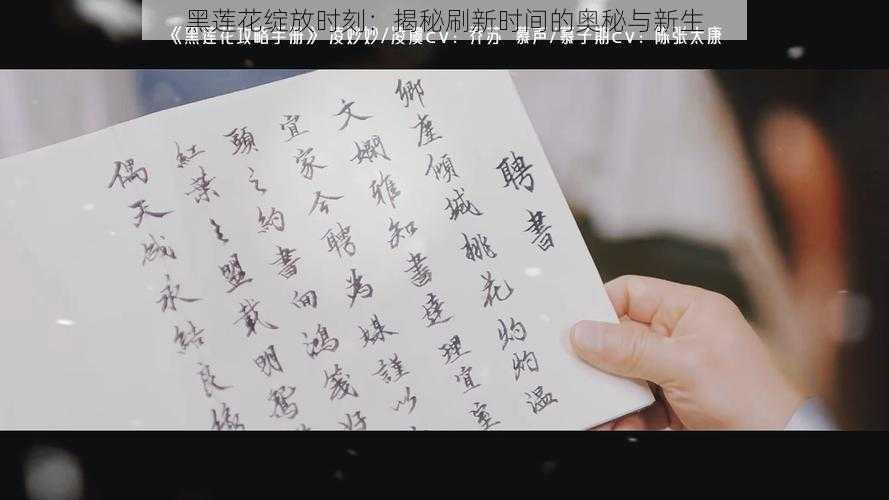 黑莲花绽放时刻：揭秘刷新时间的奥秘与新生
《黑莲花攻略手册》凌妙妙/凌虞CV：乔苏 慕声/慕子期CV：陈张太康
聘書
傾城桃花灼灼温
文嫻雅知書達理宜室
宜家今聘為媒謹以
頭之約書向鴻箋好
紅葉之盟載明鴛
偶天成永結良緣